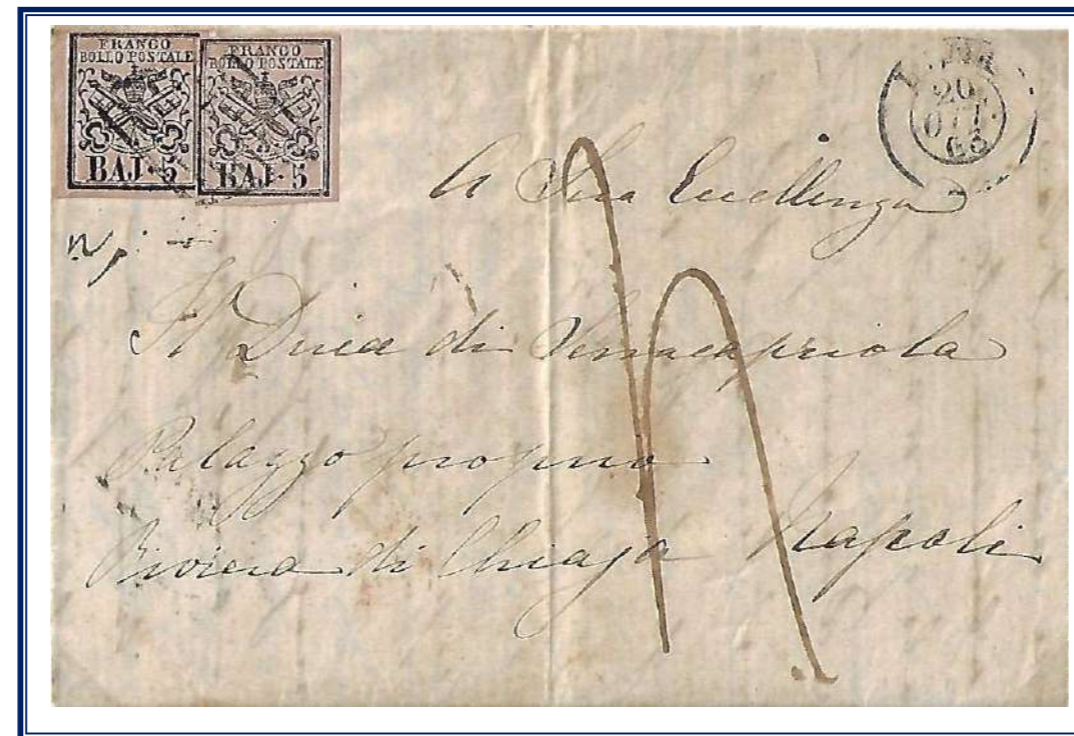 FRANCO
BOLLO POSTALE
BAJ. 5
FRANCO
BOLLO POSTALE
BAJ. 5
20
OTT.
A Sua Eccellenza
Il Duca di Serracapriola
Palazzo proprio
Riviera di Chiaja Napoli